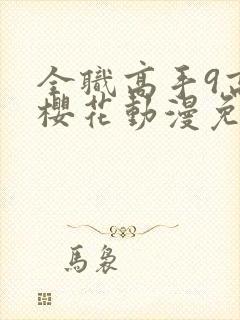 全職高手9高
櫻花動漫免
馬裊